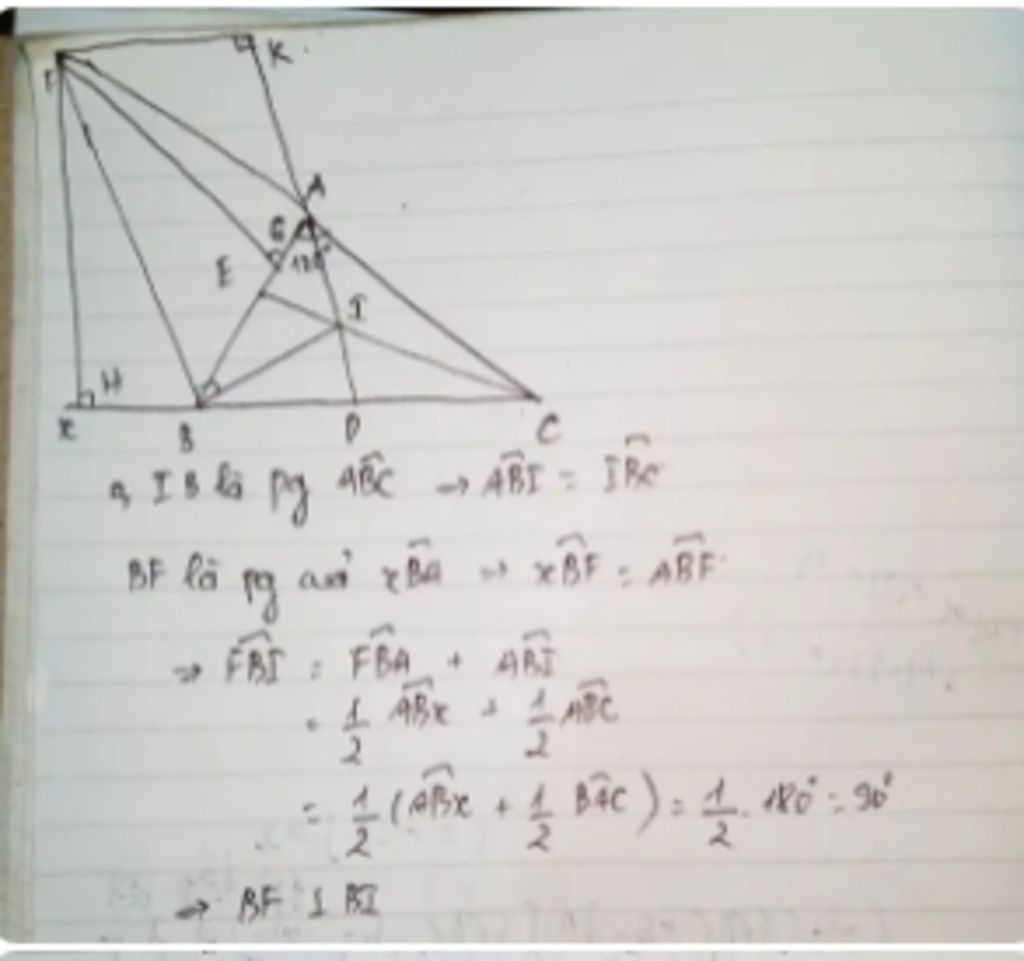 K
F
A
G
120°
E
I
H
x B D C
a, IB là pg ABC → ABI = IBC
BF là pg của xBA → xBF = ABF
→ FBI = FBA + ABI
= 1/2 ABx + 1/2 ABC
= 1/2 (ABx + 1/2 BAC) = 1/2 . 180° = 90°
→ BF ⊥ BI